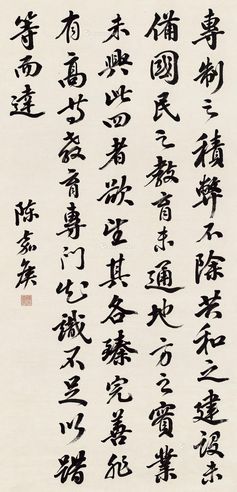 專制之積弊不除共和之建設未
備國民之教育未通地方之實業
未興此四者欲望其各臻完善非
有高等教育專門知識不足以躋
等而達
陳嘉庚